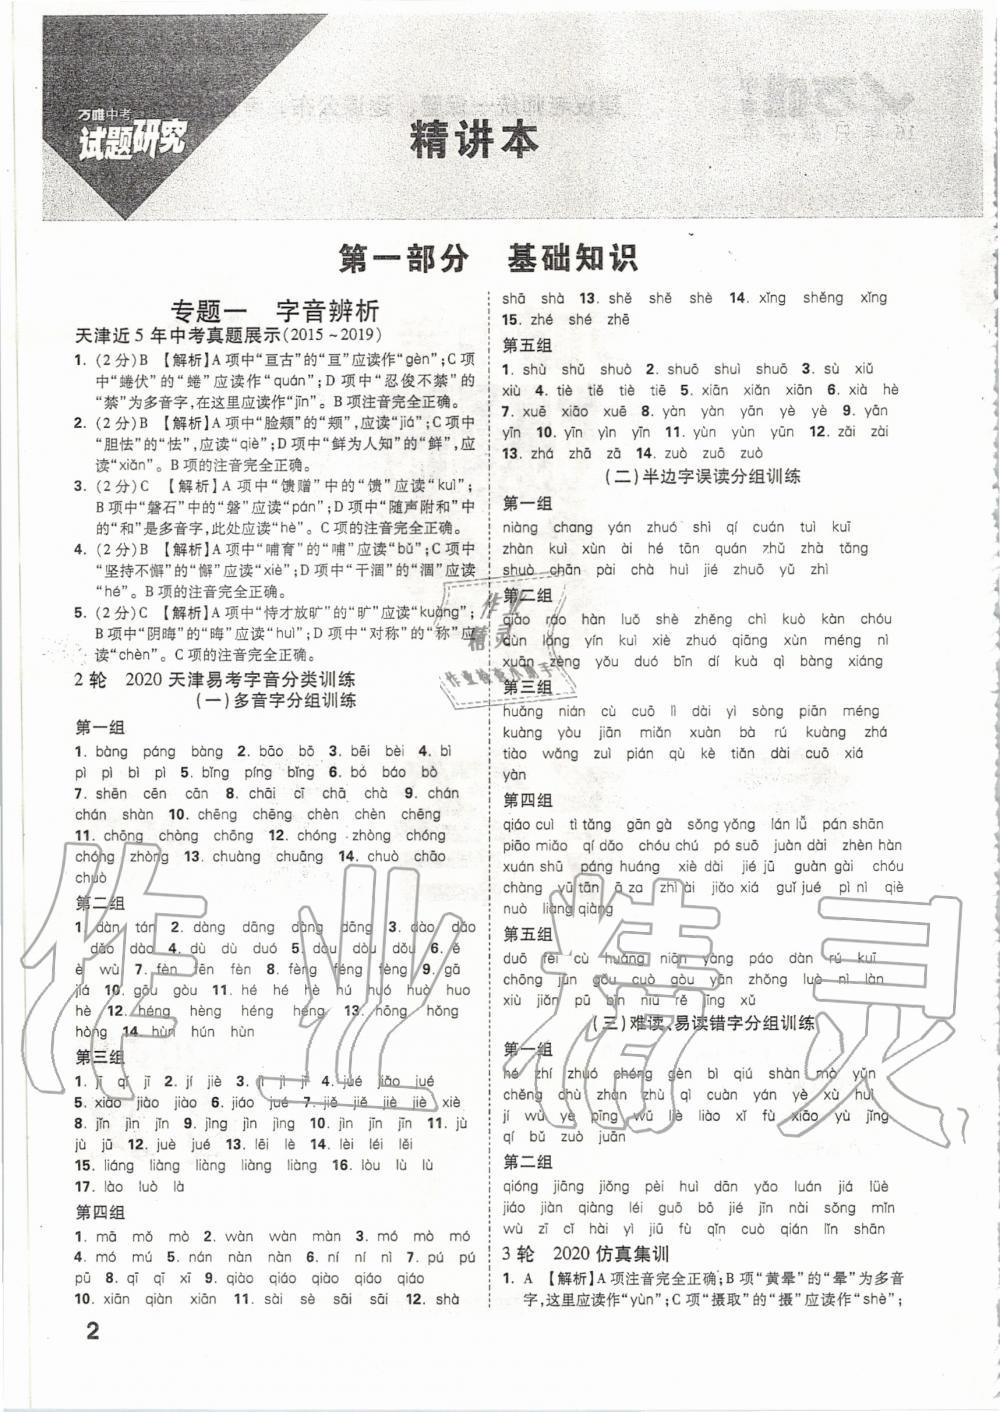 万唯中考
试题研究
精讲本
第一部分 基础知识
专题一 字音辨析
天津近5年中考真题展示(2015~2019)
1. (2分)B 【解析】A项中“亘古”的“亘”应读作“gèn”;C项
中“蜷伏”的“蜷”应读作“quán”;D项中“忍俊不禁”的
“禁”为多音字,在这里应读作“jīn”。B项注音完全正确。
2. (2分)B 【解析】A项中“脸颊”的“颊”,应读“jiá”;C项
中“胆怯”的“怯”,应读“qiè”;D项中“鲜为人知”的“鲜”,应
读“xiǎn”。B项的注音完全正确。
3. (2分)C 【解析】A项中“馈赠”中的“馈”应读“kuì”;
B项中“磐石”中的“磐”应读“pán”;D项中“随声附和”中
的“和”是多音字,此处应读“hè”。C项的注音完全正确。
4. (2分)B 【解析】A项中“哺育”的“哺”应读“bǔ”;C项中
“坚持不懈”的“懈”应读“xiè”;D项中“干涸”的“涸”应读
“hé”。B项的注音完全正确。
5. (2分)C 【解析】A项中“恃才放旷”的“旷”应读“kuàng”;
B项中“阴晦”的“晦”应读“huì”;D项中“对称”的“称”应
读“chèn”。C项的注音完全正确。
2轮 2020天津易考字音分类训练
(一)多音字分组训练
第一组
1. bàng páng bàng 2. bāo bō 3. bēi bèi 4. bì
pì pì bì 5. bǐng píng bǐng 6. bó báo bò
7. shēn cēn cān 8. chāi cī chā 9. chán
chán shàn 10. chēng chēng chèn chèn chēng
11. chōng chòng chōng 12. chóng zhòng chóng
chóng zhòng 13. chuàng chuāng 14. chuò chāo
chuò
第二组
1. dàn tán 2. dàng dāng dàng dàng 3. dào dǎo
dǎo dào 4. dù dù duó 5. dou dòu dǒu 6. ě
è wù 7. fèn fēn fèn 8. fèng féng fèng 9. gā
jiá 10. gōu gòu 11. hé hé hè hú huó huò huo
hè 12. héng hèng héng héng 13. hōng hǒng
hòng 14. hùn hún hùn
第三组
1. jī qǐ jī 2. jí jiè 3. jì jì jǐ 4. jué jiáo jué
5. xiào jiào jiào 6. jiáo jué 7. jiē jiē jié jiē xiè
8. jǐn jìn jīn 9. jìng jìn jìng 10. jīn jīn jīn 11. jù
jù jū 12. juè jué 13. lēi lè 14. lèi léi lěi
15. liáng liàng liàng liàng liàng 16. lòu lù lù
17. lào luò là
第四组
1. mā mǒ mò 2. wàn wàn màn 3. mó mó mò
4. mó mú 5. nàn nán nàn 6. ní ní nì 7. pú pú
pū 8. qī qī xī 9. qiào qiào qiáo qiào
10. xiān qiàn xiān 11. sài sè sāi sāi 12. shà
shā shà 13. shě shě shè 14. xǐng shěng xǐng
15. zhé shé zhē
第五组
1. shù shǔ shù 2. shuō shuì shuō 3. sù xiǔ
xiù 4. tiè tiě tiè tiē 5. xiān xiǎn xiān 6. xià hè
7. xuē xiāo xuē 8. yàn yàn yān yè yè 9. yān
yīn 10. yīn yīn yān 11. yùn yùn yūn 12. zǎi zài
13. zhá zhā zā 14. zuò zuō zuò
(二)半边字误读分组训练
第一组
niàng chang yán zhuó shì qí cuán tuì kuī
zhàn kuì xùn ài hé tān quán zhǔ zhà tǎng
shuò chān pài chà huì jié zhuō yǔ zhì
第二组
qiáo ráo hàn luó shǔ zhēng chì kuò kàn chóu
cùn lǎng yín kuì xiè zhuó qiāng xùn méng nì
xuān zèng yǔ duó bīn dí kuà qì bàng xiáng
第三组
huǎng nián cù cuō lì dài yì sòng piān méng
kuàng yòu jiān miǎn xuàn bà rú kuàng zhá
tiào wǎng zuì pián qù kè tiǎn dài cuō xiá
yàn
第四组
qiáo cuì tì tǎng gān gà sǒng yǒng lán lǚ pán shān
piāo miǎo qǐ dǎo chú chú pó suō juàn dài zhèn hàn
xuán shū páng huáng xiè dài jié jū guàn gài chóu
chàng yū tān ā za zhì ài jiǎo xiá guǐ jué pì nì qiè
nuò liàng qiàng
第五组
duō fēi cù huǎng niǎn yàng páo dàn rú kuī
chōng jùn gōu cuò gòu yàn zhǒng luò nì làn
xiù jiǎn pū bìn niu rě yǐng xǔ
(三)难读、易读错字分组训练
第一组
hé zhǐ zhuó chéng gèn bì qiú shàn mò yǔn
chěng chù zhàn zhù qì cuàn yán yè xù huì
jí wù yè pīng wū liè liào xī fù xiāo yù jīng
qí bǔ zuò juān
第二组
qióng jiāng jiǒng pèi huì dān yǎo luán jiá lüè
jiáo qiàn qiàng léi guō bō jié jìn nài sòng mì
wù zī cī hài yì jiū fù qǐn cuò qián lǐn shān
3轮 2020仿真集训
1. A 【解析】A项注音完全正确;B项“黄晕”的“晕”为多音
字,这里应读作“yùn”;C项“摄取”的“摄”应读作“shè”;
2
作业
精灵
作业检查小助手
作业精灵